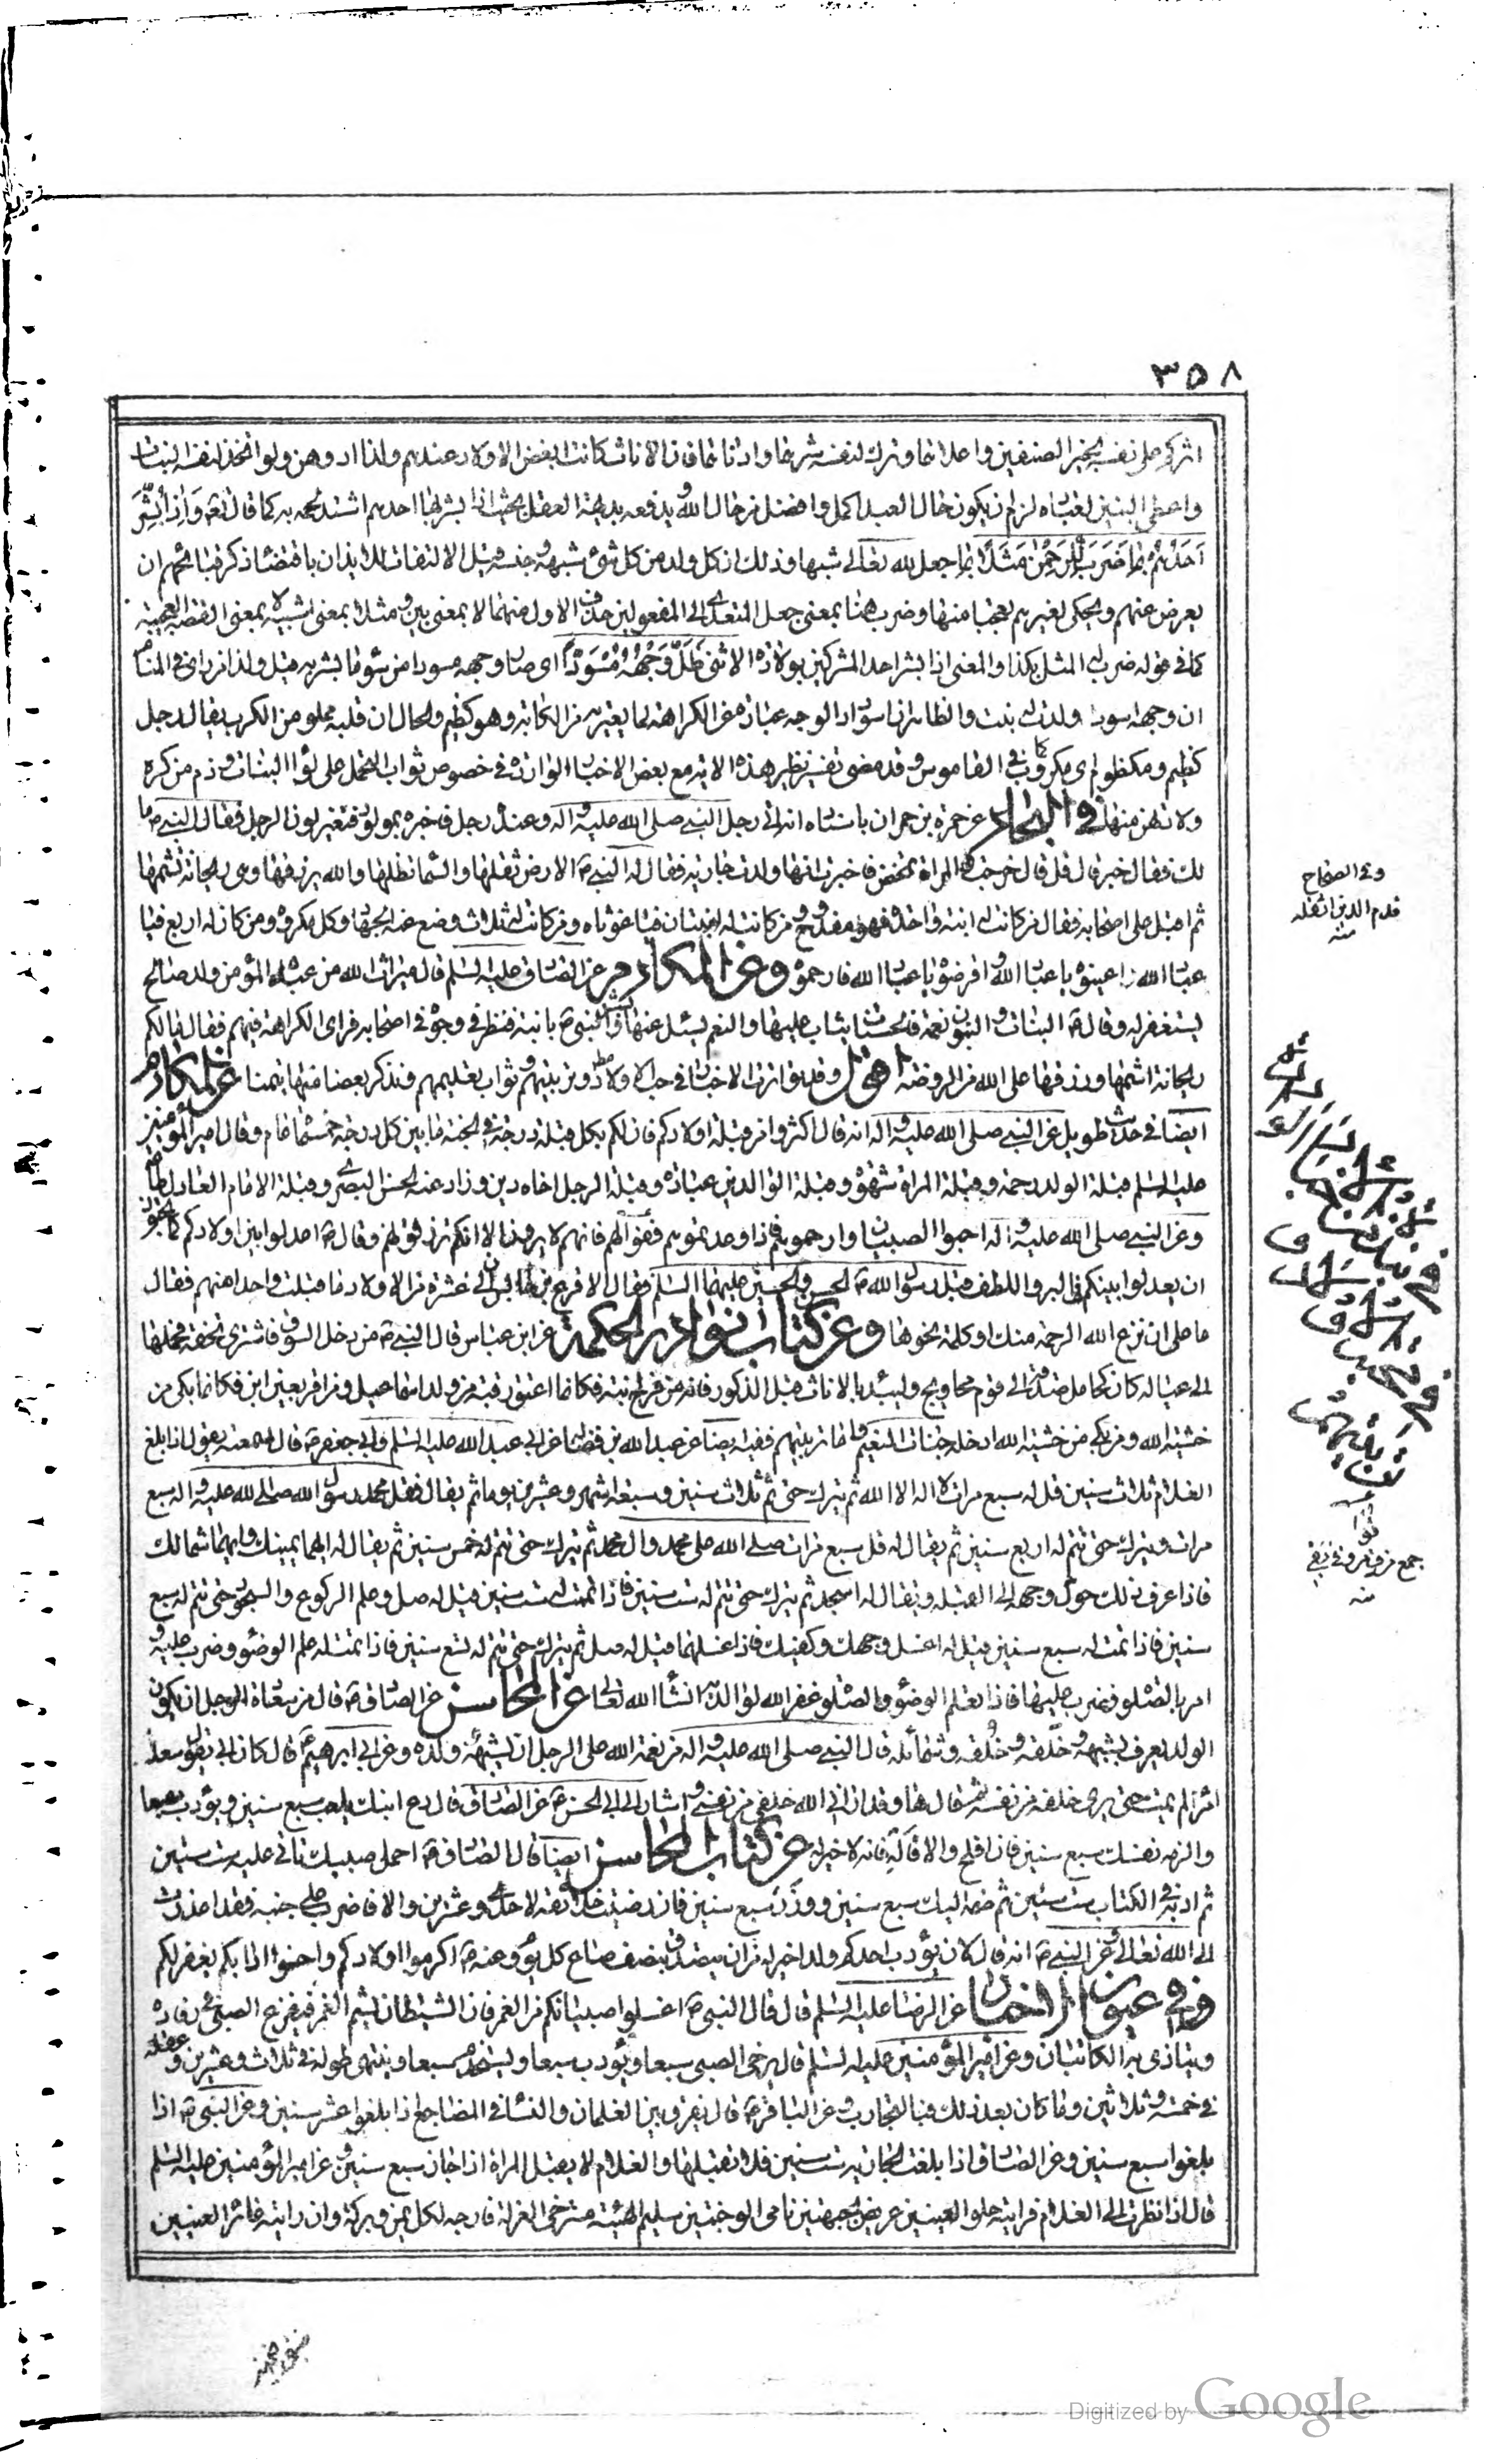 ٣٥٨
اثركم على نفسه بخير الصنفين واعلاهما وترك لنفسه شرهما وادناهما فان الاناث كانت ابغض الاولاد عندهم ولذا ادوهن ولو اتخذ لنفسه البنات
واعطى البنين لعباده لزم ان يكون حال العبد اكمل وافضل من حال الله ويدفعه بديهة العقل بحيث اذا بشر بها احدهم اشتد غمه به كما قال تعالى وَاِذَا بُشِّرَ
اَحَدُهُمْ بِمَا ضَرَبَ لِلرَّحْمٰنِ مَثَلًا بما جعل لله تعالى شبها وذلك ان كل ولد من كل شئ شبهه وجنسه قيل الالتفات للايذان باقتضاء ذكر قبائحهم ان
يعرض عنهم ويحكى لغيرهم تعجبا منها وضرب هنا بمعنى جعل المتعدى الى المفعولين حذف الاول منهما لا بمعنى بين ومثلا بمعنى شبيه لا بمعنى القصة العجيبة
كما في قوله ضرب له المثل بكذا والمعنى اذا بشر احد المشركين بولادة الانثى ظَلَّ وَجْهُهُ مُسْوَدًّا اى صار وجهه مسودا من سوء ما بشر به قيل ولذا من راى في المنام
ان وجهه اسود ولدت له بنت والظاهر ان اسوداد الوجه عبارة عن الكراهة لما يعتريه من الكآبة وهو كظيم والحال ان قلبه مملو من الكرب يقال رجل
كظيم ومكظوم اى مكروب كما في القاموس وقد مضى تفسير نظير هذه الاية مع بعض الاخبار الواردة في خصوص ثواب التحمل على لؤا البنات وذم من كره
ولادتهن منها في البحار عن حمزة بن حمران باسناده انه اتى رجل النبي صلى الله عليه واله وعنده رجل فاخبره بمولود فتغير لون الرجل فقال النبي ص ما
لك فقال خير قال قل قال خرجت والمراة تمخض فاخبرت انها ولدت جارية فقال له النبي ص الارض تقلها والسماء تظلها والله يرزقها وهى ريحانة تشمها
ثم اقبل على اصحابه فقال من كانت له ابنة واحدة فهو مفدوح ومن كانت له ابنتان فيا غوثاه ومن كانت له ثلاث وضع عنه الجهاد وكل مكروه ومن كان له اربع فيا
عباد الله اعينوه يا عباد الله اقرضوه يا عباد الله فارحموه وعن المكارم عن الصادق عليه السلم قال ميراث الله من عبده المؤمن ولد صالح
يستغفر له وقال ص البنات حسنات والبنون نعمة فالحسنات يثاب عليها والنعم يسئل عنها وبشر النبي ص بابنة فنظر في وجوه اصحابه فراى الكراهة فيهم فقال مالكم
ريحانة اشمها ورزقها على الله عن الروضة اقول وقد تواترت الاخبار في حب الاولاد وتربيتهم وثواب تعليمهم ونذكر بعضا منها تيمنا عن المكارم
ايضا في حديث طويل عن النبي صلى الله عليه واله انه قال اكثروا من قبلة اولادكم فان لكم بكل قبلة درجة في الجنة ما بين كل درجة خمسمائة عام وقال امير المؤمنين
عليه السلم قبلة الولد رحمة وقبلة المراة شهوة وقبلة الوالدين عبادة وقبلة الرجل اخاه دين وزاد عنه الحسن البصرى وقبلة الامام العادل طاعة
وعن النبي صلى الله عليه واله احبوا الصبيان وارحموهم فاذا وعدتموهم ففوا لهم فانهم لا يرون الا انكم ترزقونهم وقال ص اعدلوا بين اولادكم كما تحبون
ان يعدلوا بينكم في البر واللطف قبل رسول الله ص الحسن والحسين عليهما السلم فقال الاقرع بن حابس ان لى عشرة من الاولاد ما قبلت واحدا منهم فقال
ما على ان نزع الله الرحمة منك او كلمة نحوها وعن كتاب نوادر الحكمة عن ابن عباس قال النبي ص من دخل السوق فاشترى تحفة فحملها
الى عياله كان كحامل صدقة الى قوم محاويج وليبدء بالاناث قبل الذكور فانه من فرح ابنته فكانما اعتق رقبة من ولد اسماعيل ومن اقر بعين ابن فكانما بكى من
خشية الله ومن بكى من خشية الله ادخله جنات النعيم واما تربيتهم ففيه ايضا عن عبد الله بن فضالة عن ابى عبد الله عليه السلم وابى جعفر ص قال سمعته يقول اذا بلغ
الغلام ثلاث سنين قل له سبع مرات لا اله الا الله ثم يترك حتى يتم ثلاث سنين وسبعة اشهر وعشرين يوما ثم يقال قل محمد رسول الله صلى الله عليه واله سبع
مرات ويترك حتى يتم له اربع سنين ثم يقال له قل سبع مرات صلى الله على محمد وال محمد ثم يترك حتى يتم له خمس سنين ثم يقال له ايهما يمينك وايهما شمالك
فاذا عرف ذلك حول وجهه الى القبلة ويقال له اسجد ثم يترك حتى يتم له ست سنين فاذا تمت له ست سنين قيل له صل وعلم الركوع والسجود حتى يتم له سبع
سنين فاذا تمت له سبع سنين قيل له اغسل وجهك وكفيك فاذا غسلهما قيل له صل ثم يترك حتى يتم له تسع سنين فاذا تمت له علم الوضوء وضرب عليه و
امر بالصلوة وضرب عليها فاذا تعلم الوضوء والصلوة غفر الله لوالديه انشاء الله تعالى عن المحاسن عن الصادق ص قال من سعادة الرجل ان يكون
الولد يعرف بشبهه وخَلقه وخُلقه وشمائله قال النبي صلى الله عليه واله من نعمة الله على الرجل ان يشبهه ولده وعن ابى ابرهيم ص قال كان ابى يقول سعد
امرء لم يمت حتى يرى خلفه من نفسه ثم قال ها وقد ارانى الله خلفى من نفسى واشار الى ابى الحسن ص عن الصادق قال دع ابنك يلعب سبع سنين ويؤدب سبعا
والزمه نفسك سبع سنين فان افلح والا فانه لا خير فيه عن كتاب المحاسن ايضا قال الصادق ص احمل صبيك تاتى عليه ست سنين
ثم ادبه في الكتاب ست سنين ثم ضمه اليك سبع سنين فان رضيت خلائقه لاحدى وعشرين والا فاضرب على جنبه فقد اعذرت
الى الله تعالى عن النبي ص انه قال لان يؤدب احدكم ولدا خير له من ان يتصدق بنصف صاع كل يوم وعنه ص اكرموا اولادكم واحسنوا ادابكم يغفر لكم
وفي عيون الاخبار عن الرضا عليه السلم قال قال النبي ص اغسلوا صبيانكم من الغمر فان الشيطان يشم الغمر فيفزع الصبى في رقاده
ويتاذى به الكاتبان وعن امير المؤمنين عليه السلم قال يرخى الصبى سبعا ويؤدب سبعا ويستخدم سبعا وينتهى طوله في ثلاث وعشرين وعقله
في خمسة وثلاثين وما كان بعد ذلك فبالتجارب وعن الباقر ص قال يفرق بين الغلمان والنساء في المضاجع اذا بلغوا عشر سنين وعن النبي ص اذا
بلغوا سبع سنين وعن الصادق اذا بلغت الجارية ست سنين فلا تقبلها والغلام لا يقبل المراة اذا جاز سبع سنين وعن امير المؤمنين عليه السلم
قال اذا نظرت الى الغلام فرايته حلو العينين عريض الجبهة نامى الوجنتين سليم الهيئة مسترخى العزلة فارجه لكل يمن وبركة وان رايته غائر العينين
وفي الصحاح
فدح الدين اثقله
منه